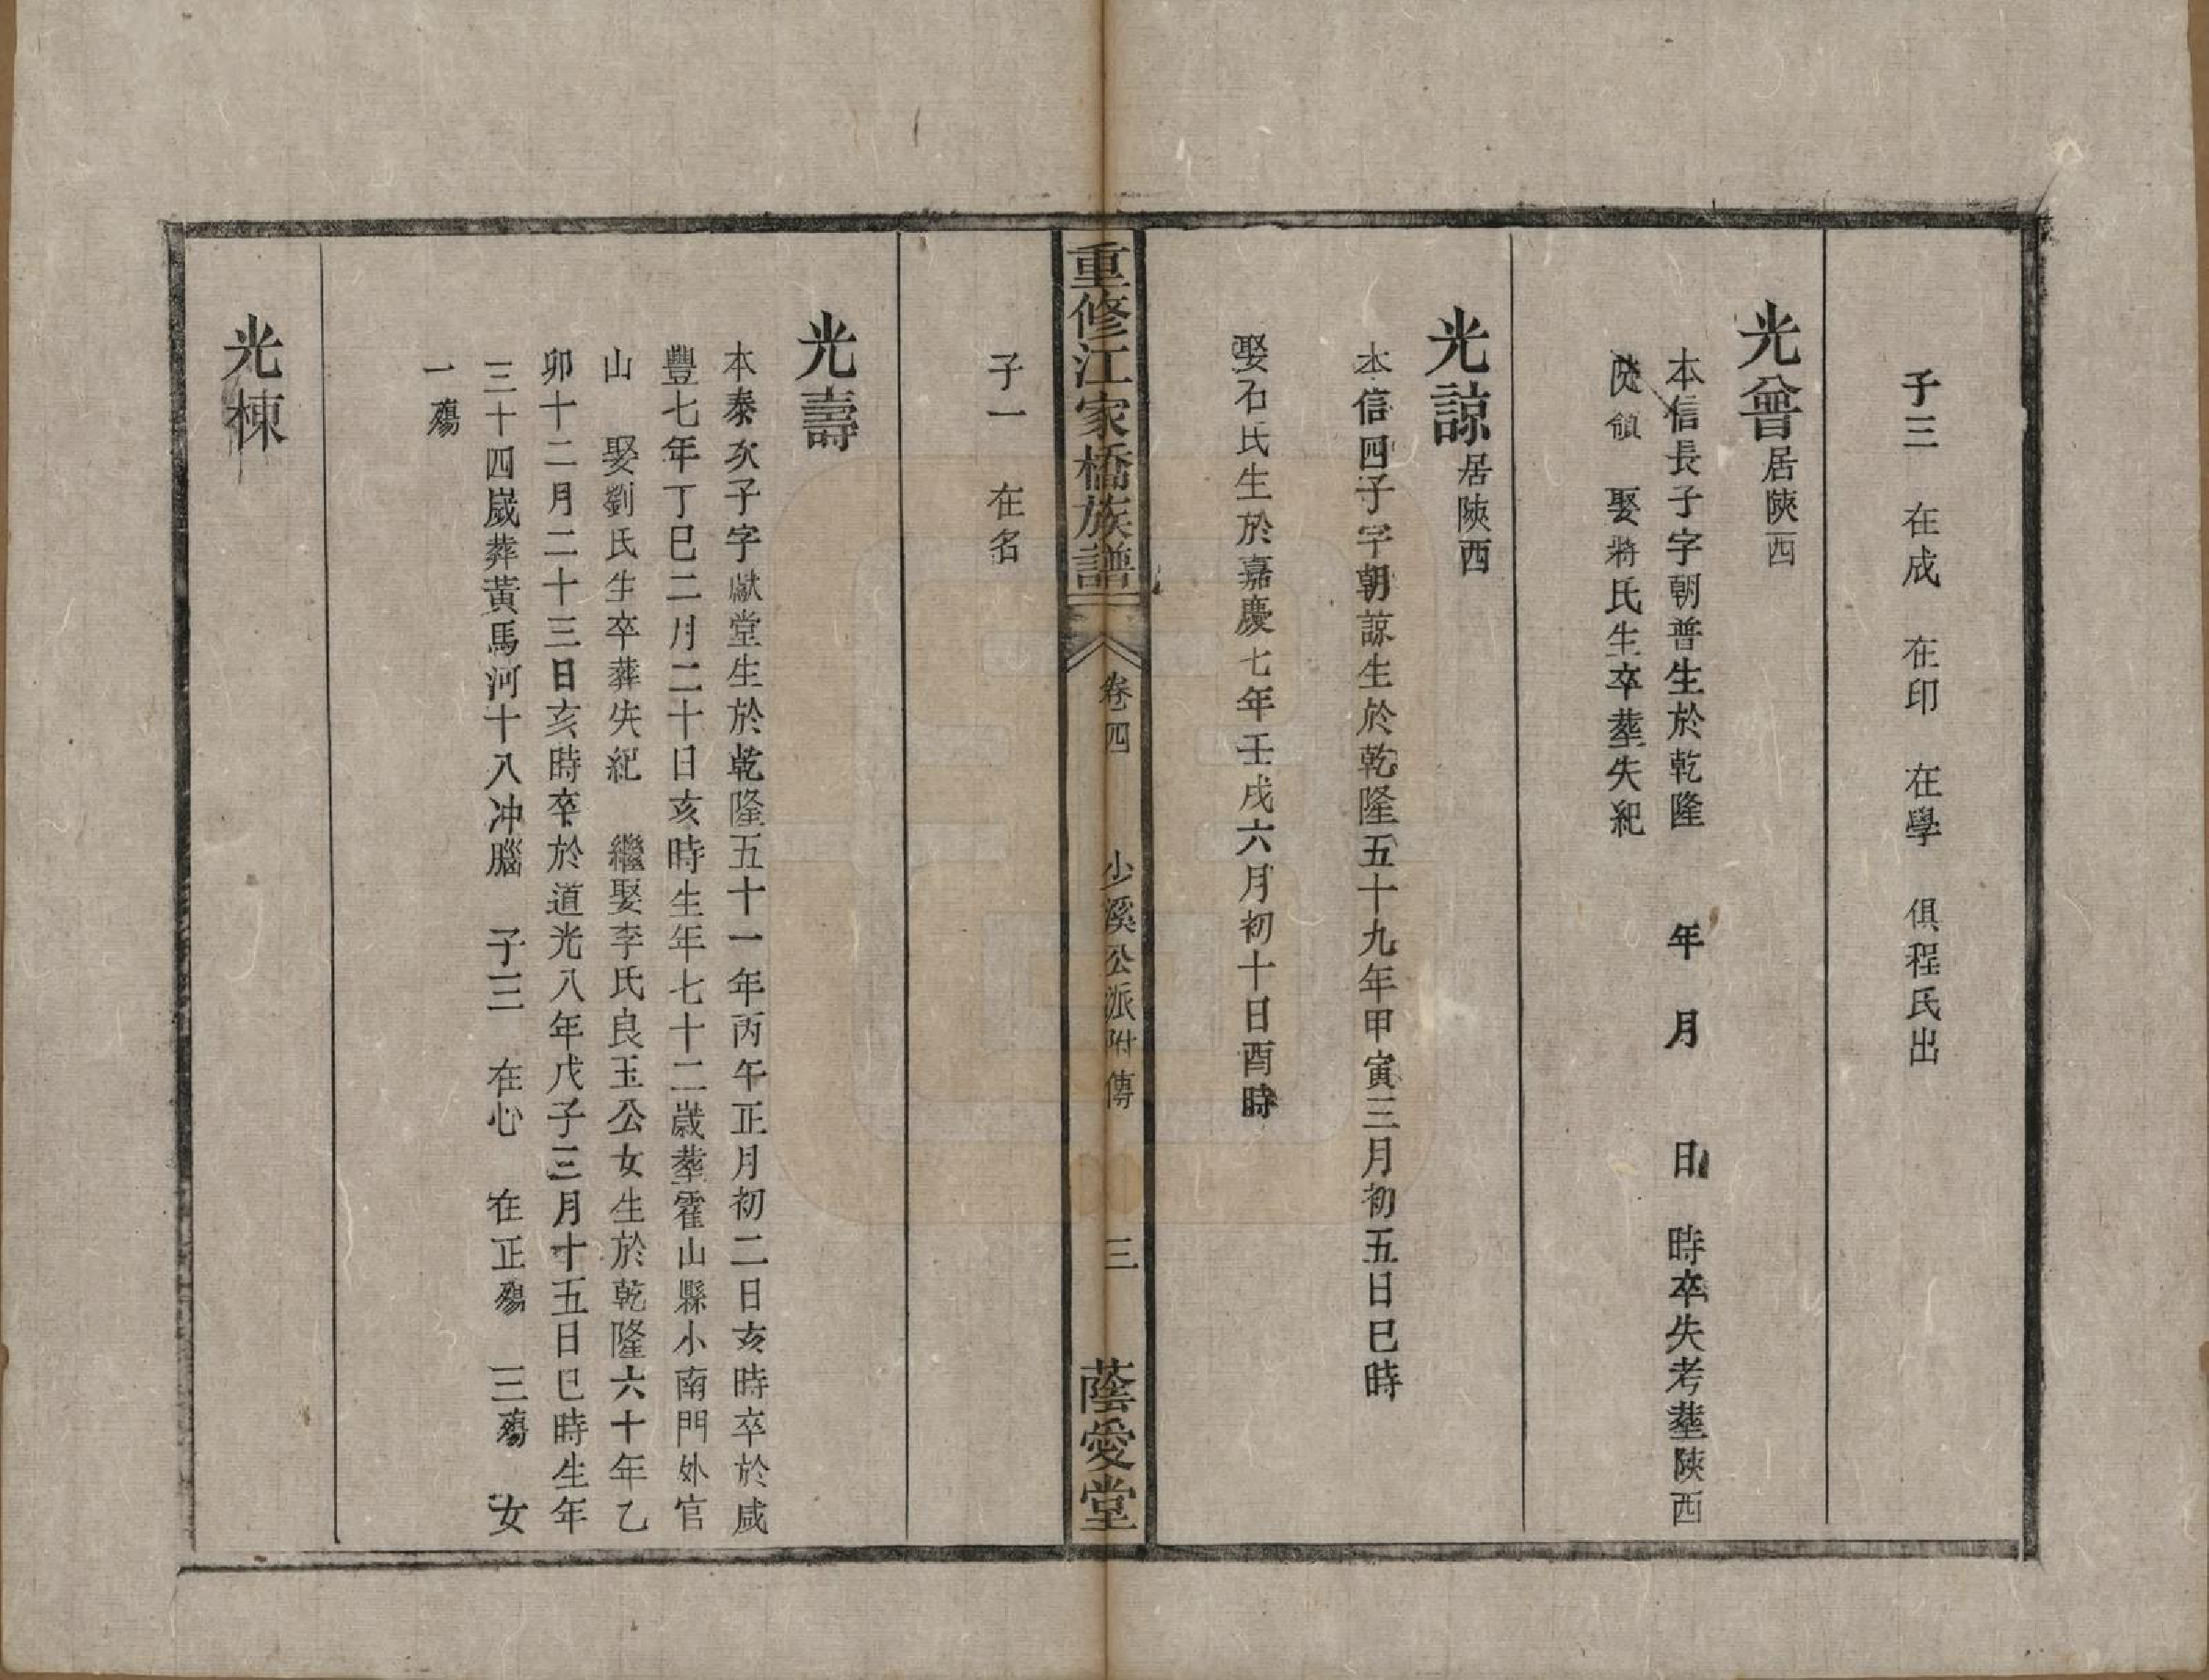 子三　在成　在印　在學　俱程氏出
光曾居陝西
本信長子字朝普生於乾隆　年　月　日　時卒失考塟陝西
娶將氏生卒塟失紀
光諒居陝西
本信四子字朝諒生於乾隆五十九年甲寅三月初五日巳時
娶石氏生於嘉慶七年壬戌六月初十日酉時
重修江家橋族譜　卷四　少溪公派附傳　三　蔭愛堂
子一　在名
光壽
本泰次子字獻堂生於乾隆五十一年丙午正月初二日亥時卒於咸
豐七年丁巳二月二十日亥時生年七十二歲塟霍山縣小南門外官
山　娶劉氏生卒葬失紀　繼娶李氏良玉公女生於乾隆六十年乙
卯十二月二十三日亥時卒於道光八年戊子三月十五日巳時生年
三十四歲葬黃馬河十八冲腦　子三　在心　在正殤　三殤　女
一殤
光棟